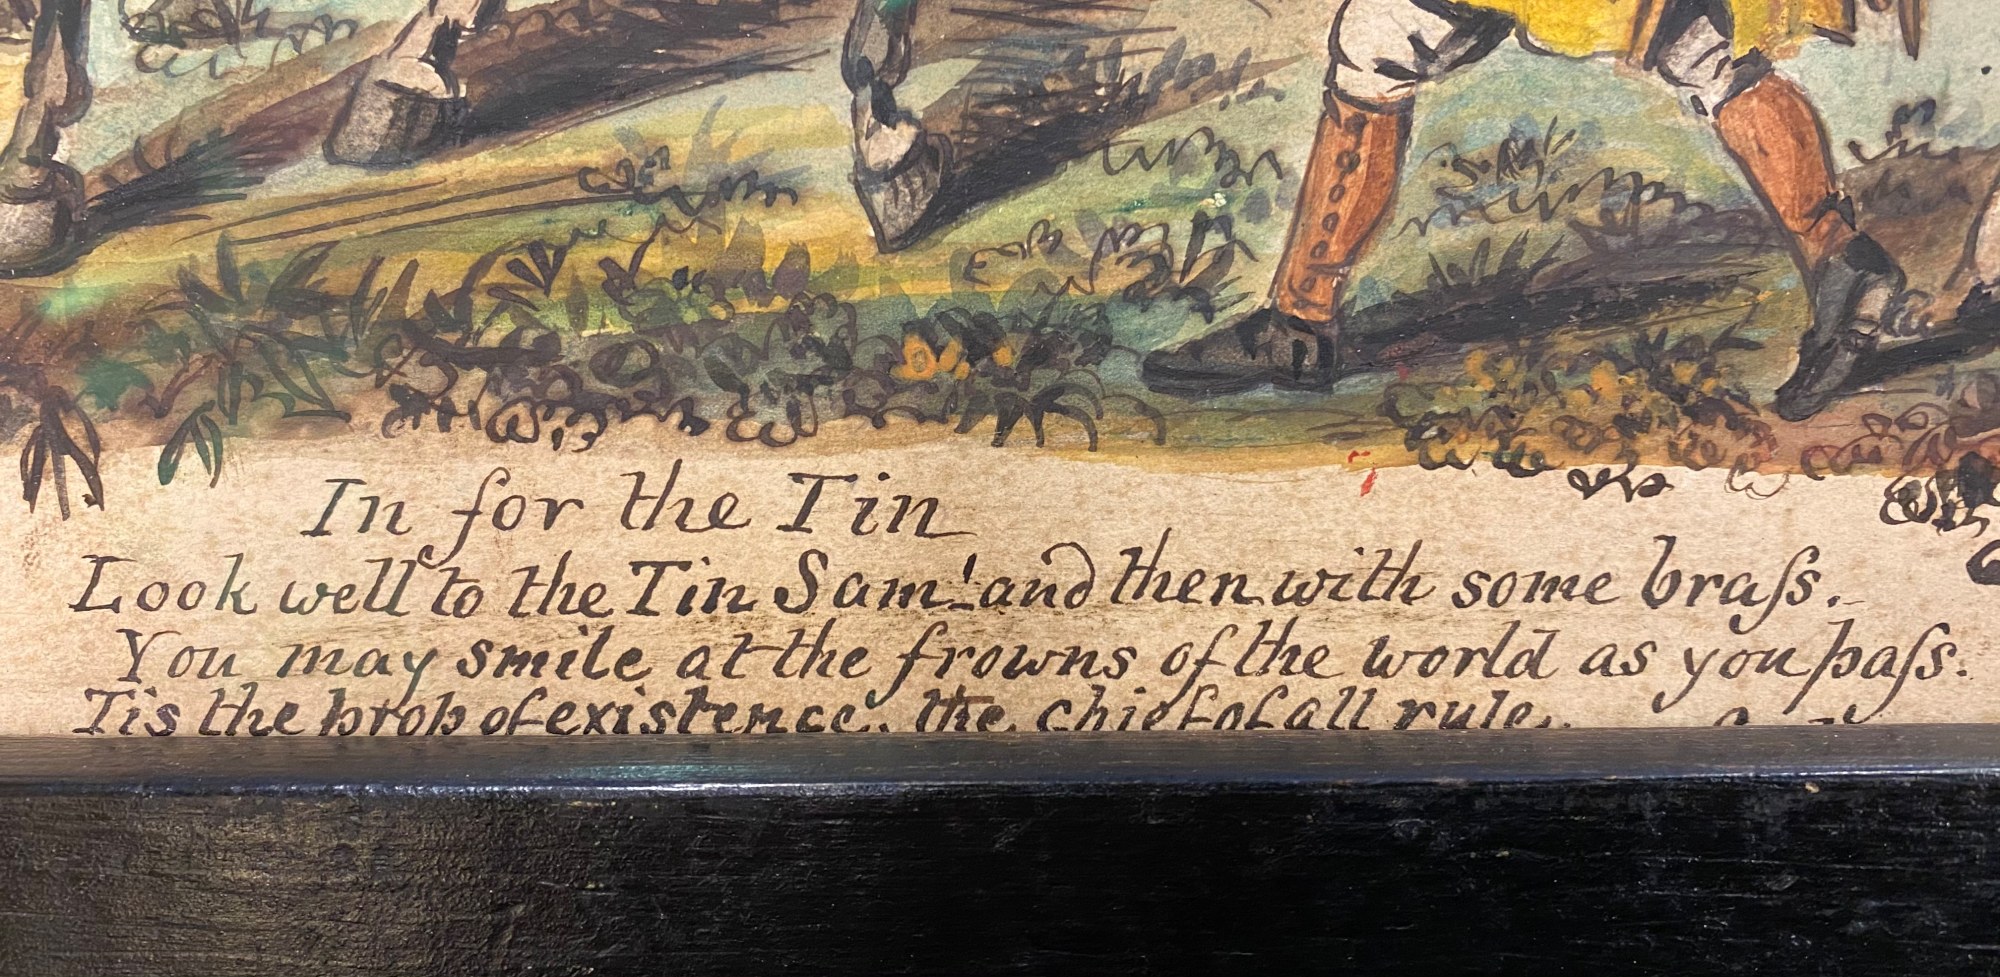 In for the Tin
Look well to the Tin Sam! and then with some braſs.
You may smile at the frowns of the world as you paſs.
Tis the prop of existence, the chief of all rule,